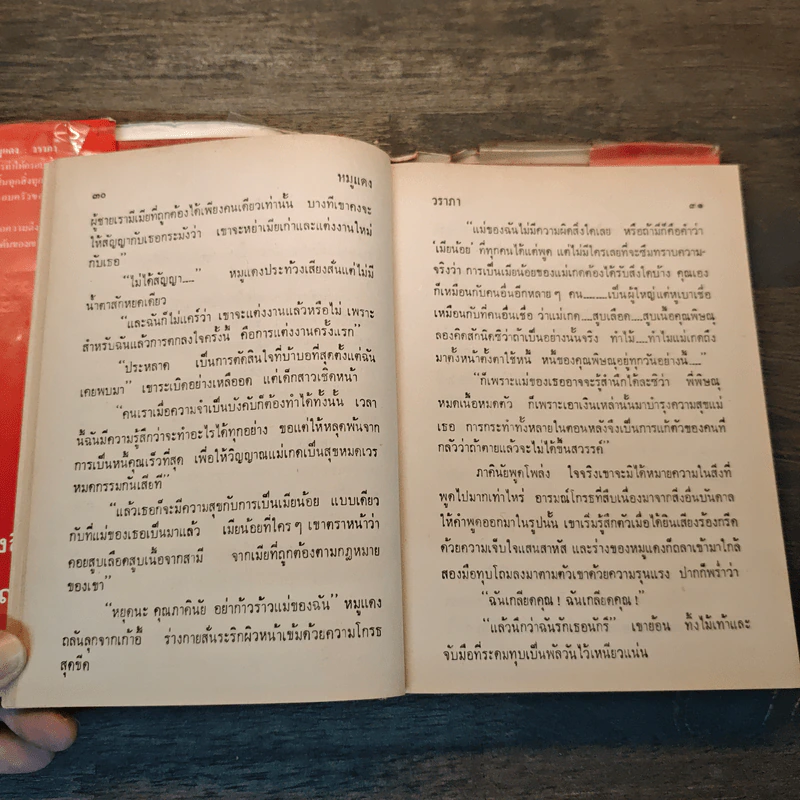 ๓๐
หมูแดง
ผู้ชายเรามีเมียที่ถูกต้องได้เพียงคนเดียวเท่านั้น บางทีเขาคงจะ
ให้สัญญากับเธอกระมังว่า เขาจะหย่าเมียเก่าและแต่งงานใหม่
กับเธอ"
"ไม่ได้สัญญา....." หมูแดงประท้วงเสียงสั่นแต่ไม่มี
น้ำตาสักหยดเดียว
"และฉันก็ไม่แคร์ว่า เขาจะแต่งงานแล้วหรือไม่ เพราะ
สำหรับฉันแล้วการตกลงใจครั้งนี้ คือการแต่งงานครั้งแรก"
"ประหลาด เป็นการตัดสินใจที่บ้าบอที่สุดตั้งแต่ฉัน
เคยพบมา" เขาระเบิดอย่างเหลืออด แต่เด็กสาวเชิดหน้า
"คนเราเมื่อความจำเป็นบังคับก็ต้องทำได้ทั้งนั้น เวลา
นี้ฉันมีความรู้สึกว่าจะทำอะไรได้ทุกอย่าง ขอแต่ให้หลุดพ้นจาก
การเป็นหนี้คุณเร็วที่สุด เพื่อให้วิญญาณแม่เกดเป็นสุขหมดเวร
หมดกรรมกันเสียที"
"แล้วเธอก็จะมีความสุขกับการเป็นเมียน้อย แบบเดียว
กับที่แม่ของเธอเป็นมาแล้ว เมียน้อยที่ใครๆ เขาตราหน้าว่า
คอยสูบเลือดสูบเนื้อจากสามี จากเมียที่ถูกต้องตามกฎหมาย
ของเขา"
"หยุดนะ คุณภาคินัย อย่าก้าวร้าวแม่ของฉัน" หมูแดง
ถลันลุกจากเก้าอี้ ร่างกายสั่นระริกผิวหน้าเข้มด้วยความโกรธ
สุดขีด
วราภา
๓๑
"แม่ของฉันไม่มีความผิดสิ่งใดเลย หรือถ้ามีก็คือคำว่า
'เมียน้อย' ที่ทุกคนได้แต่พูด แต่ไม่มีใครเลยที่จะซึมทราบความ-
จริงว่า การเป็นเมียน้อยของแม่เกดต้องได้รับสิ่งใดบ้าง คุณเอง
ก็เหมือนกับคนอื่นอีกหลายๆ คน.......เป็นผู้ใหญ่แต่หูเบาเชื่อ
เหมือนกับที่คนอื่นเชื่อ ว่าแม่เกด.....สูบเลือด.....สูบเนื้อคุณพิษณุ
ลองคิดสักนิดซิว่าถ้าเป็นอย่างนั้นจริง ทำไม.....ทำไมแม่เกดถึง
มาตั้งหน้าตั้งตาใช้หนี้ หนี้ของคุณพิษณุอยู่ทุกวันอย่างนี้....."
"ก็เพราะแม่ของเธออาจจะรู้สำนึกได้ละซิว่า พี่พิษณุ
หมดเนื้อหมดตัว ก็เพราะเอาเงินเหล่านั้นมาบำรุงความสุขแม่
เธอ การกระทำทั้งหลายในตอนหลังจึงเป็นการแก้ตัวของคนที่
กลัวว่าถ้าตายแล้วจะไม่ได้ขึ้นสวรรค์"
ภาคินัยพูดโพล่ง ใจจริงเขาจะมิได้หมายความในสิ่งที่
พูดไปมากเท่าไหร่ อารมณ์โกรธที่สืบเนื่องมาจากสิ่งอื่นบันดาล
ให้คำพูดออกมาในรูปนั้น เขาเริ่มรู้สึกตัวเมื่อได้ยินเสียงร้องกรีด
ด้วยความเจ็บใจแสนสาหัส และร่างของหมูแดงก็ถลาเข้ามาใกล้
สองมือทุบโถมลงมาตามตัวเขาด้วยความรุนแรง ปากก็พร่ำว่า
"ฉันเกลียดคุณ ! ฉันเกลียดคุณ !"
"แล้วนึกว่าฉันรักเธอนักรึ" เขาย้อน ทิ้งไม้เท้าและ
จับมือที่ระดมทุบเป็นพัลวันไว้เหนียวแน่น